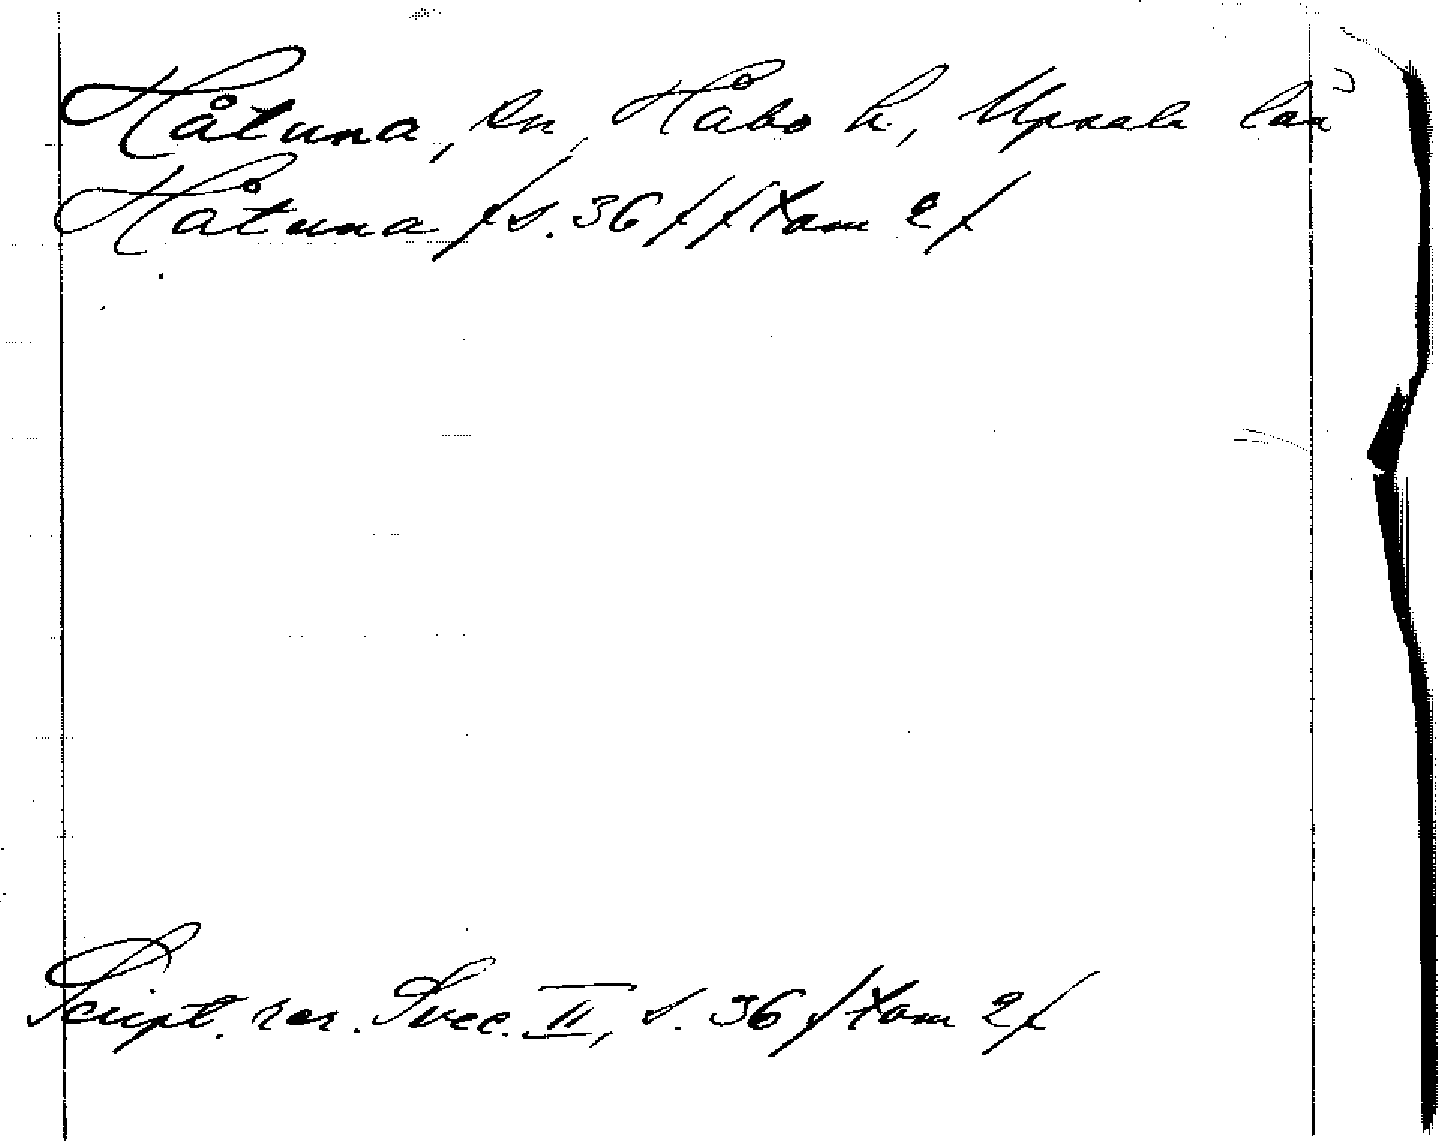 Håtuna, sn, Håbo h., Upsala län
Håtuna /s. 36/ /tom 2/
Script. rer. Svec. II, s. 36 /tom 2/